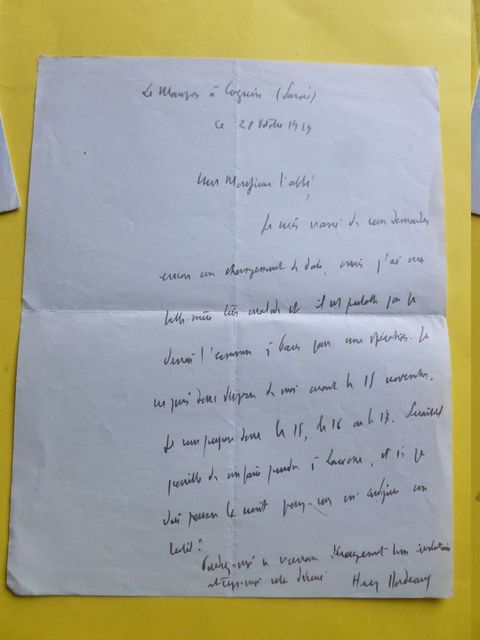 Le Maupas à Cognin (Savoie)
Ce 28 octobre 1929
Cher Monsieur l'abbé,
Je suis navré de vous demander
encore un changement de date, mais j'ai ma
belle-mère très malade et il est probable que je
devrai l'emmener à Paris pour une opération. Je
ne puis donc disposer de moi avant le 15 novembre.
Je vous propose donc le 15, le 16 ou le 17. Serait-il
possible de me faire prendre à, et si je
dois passer la nuit pouvez-vous m'indiquer un
hôtel ?
Pardonnez-moi
et croyez-moi votre dévoué Henry Bordeaux